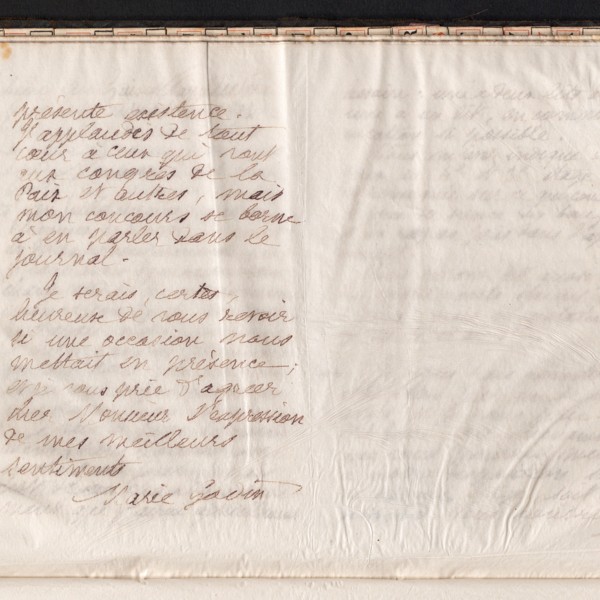 présente existence.
J'applaudis de tout
cœur à ceux qui vont
aux congrès de la
Paix et autres, mais
mon concours se borne
à en parler dans le
journal.
Je serais, certes,
heureuse de vous revoir
si une occasion nous
mettait en présence;
et je vous prie d'agréer
cher Monsieur l'expression
de mes meilleurs
sentiments
Marie